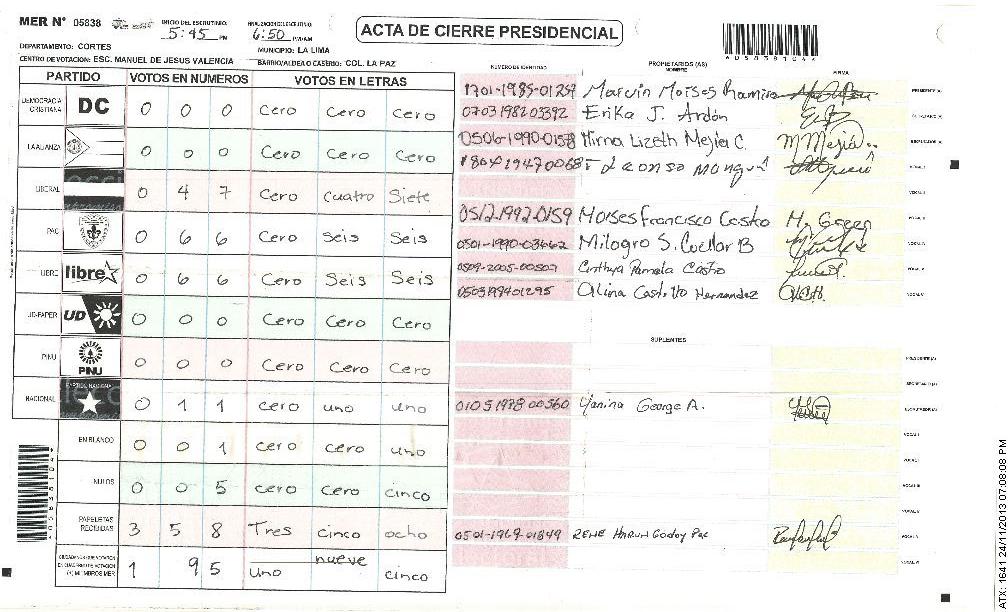 MER N° 05838
INICIO DEL ESCRUTINIO: 5:45 PM
FINALIZACION DEL ESCRUTINIO: 6:50 PM/AM
ACTA DE CIERRE PRESIDENCIAL
DEPARTAMENTO: CORTES
MUNICIPIO: LA LIMA
CENTRO DE VOTACION: ESC. MANUEL DE JESUS VALENCIA
BARRIO/ALDEA O CASERIO: COL. LA PAZ
PARTIDO VOTOS EN NUMEROS VOTOS EN LETRAS
DEMOCRACIA CRISTIANA DC 0 0 0 Cero Cero Cero
LA ALIANZA 0 0 0 Cero Cero Cero
LIBERAL 0 4 7 Cero Cuatro Siete
PAC 0 6 6 Cero Seis Seis
LIBRE libre 0 6 6 Cero Seis Seis
UD-FAPER UD 0 0 0 Cero Cero Cero
PINU PINU 0 0 0 Cero Cero Cero
NACIONAL 0 1 1 cero uno uno
EN BLANCO 0 0 1 cero cero uno
NULOS 0 0 5 cero cero cinco
PAPELETAS RECIBIDAS 3 5 8 Tres cinco ocho
1 9 5 uno nueve cinco
NUMERO DE IDENTIDAD
PROPIETARIOS (AS)
NOMBRE
FIRMA
1701-1985-01259 Marvin Moises Ramirez
0703198203392 Erika J. Ardón
0506-1990-01578 Mirna Lizeth Mejia C. M Mejia
0512-1992-0159 Moises Francisco Castro
0501-1990-03662 Milagro S. Cuellar B
0509-2005-00507 Cinthya Pamela Castro
0503199401295 Alina Castillo Hernandez
SUPLENTES
01051978 00560 Yanina George A.
0501-1969-01849 RENE HARUN Godoy Paz
ATX: 1641 24/11/2013 07:08:08 PM